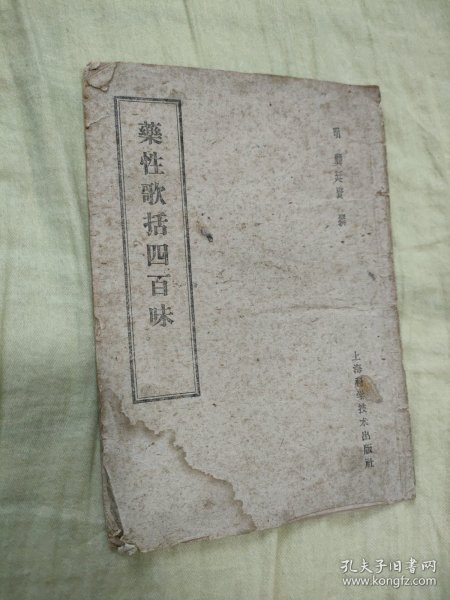 藥性歌括四百味
明 龔廷賢 撰
上海科学技术出版社
孔夫子旧书网
www.kongfz.com